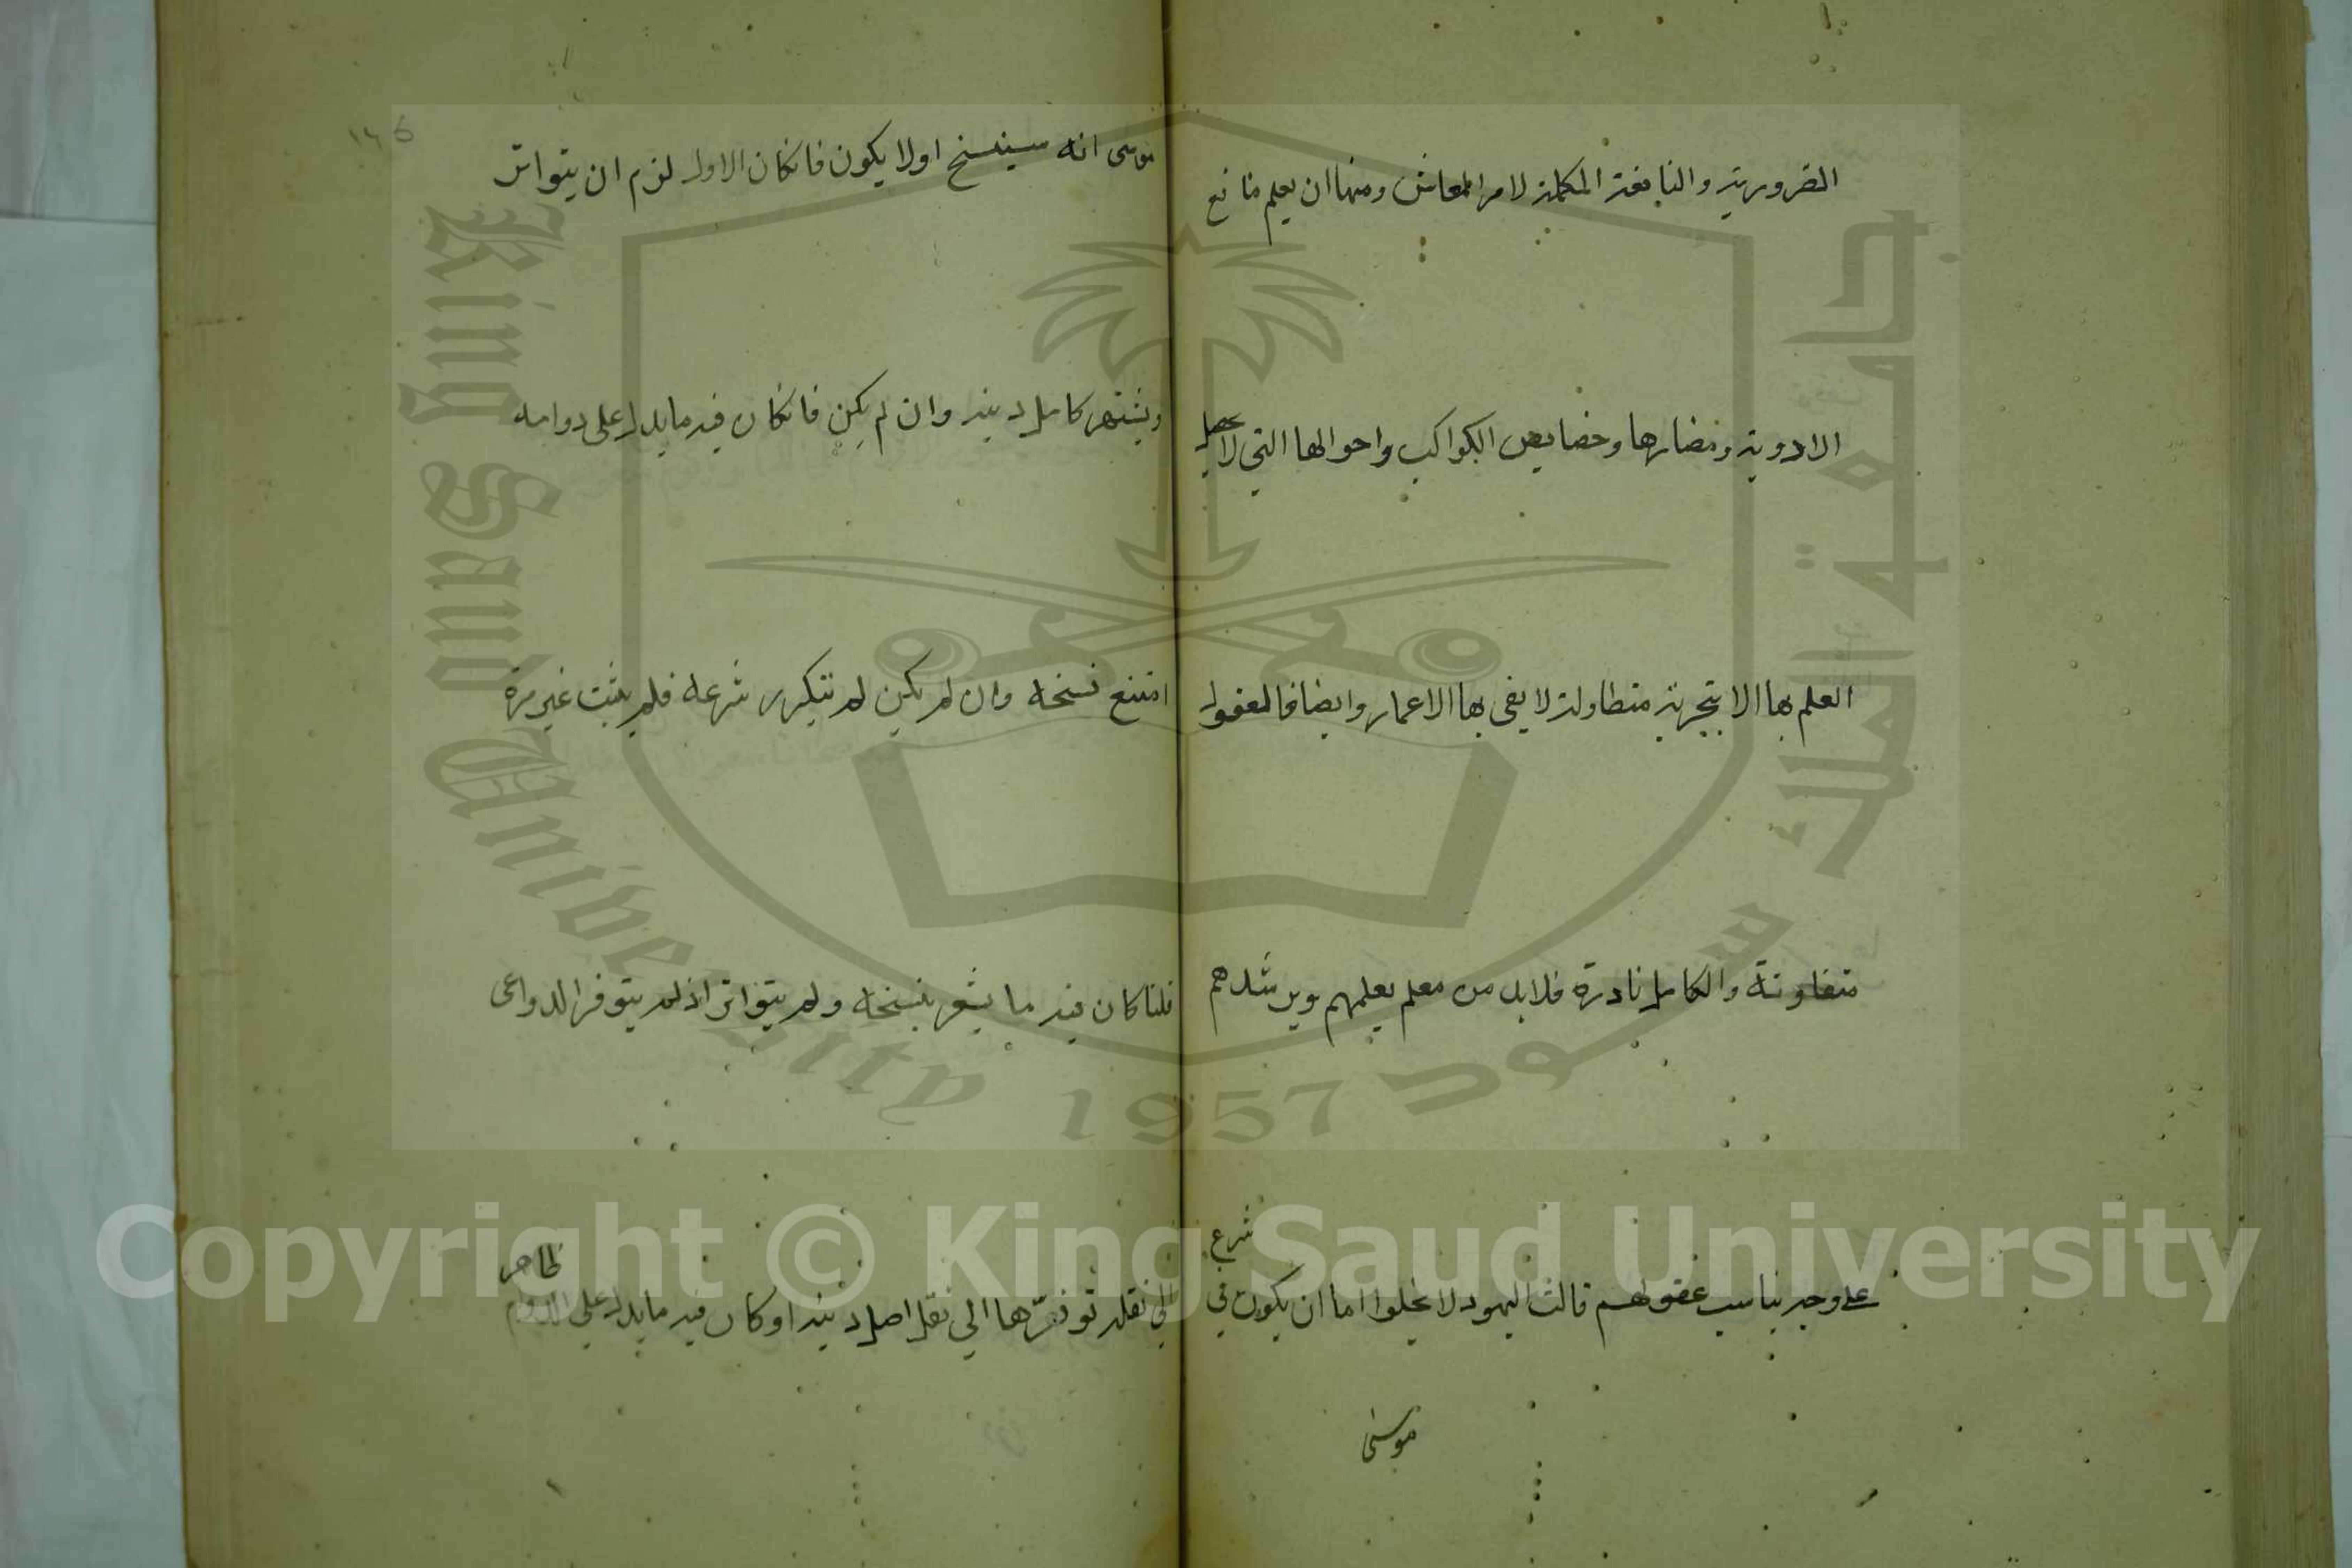 الضرورية والنافعة المكملة لامر المعاش ومنها ان يعلم منافع
الادوية ومضارها وخصايص الكواكب واحوالها التي لا يحصل
العلم بها الا بتجربة متطاولة لا يفى بها الاعمار وايضا فالعقول
متفاوتة والكامل نادرة فلابد من معلم يعلمهم ويرشدهم
على وجه يناسب عقولهم قالت اليهود لا يخلوا اما ان يكون في شرع
موسى
موسى انه سينسخ اولا يكون فانكان الاول لزم ان يتواتر
ويشتهر كاصل دينه وان لم يكن فانكان فيه ما يدل على دوامه
امتنع نسخه وان لم يكن لم يتكرر شرعه فلم يثبت غير مرة
قلنا كان فيه ما يشعر بنسخه ولم يتواتر اذ لم يتوفر الدواعى
الى نقله توفرها الي نقل اصل دينه او كان فيه ما يدل على الدوام ظاهر
King Saud University 1957
جامعة الملك سعود
Copyright © King Saud University